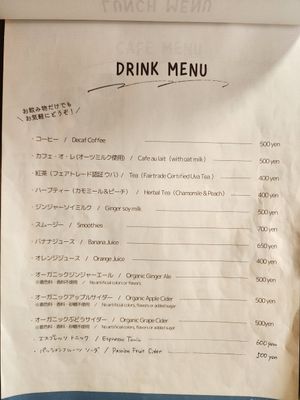 LUNCH MENU
CAFE MENU
DRINK MENU
お飲み物だけでも
お気軽にどうぞ！
・コーヒー / Decaf Coffee 500 yen
・カフェ・オ・レ（オーツミルク使用） / Cafe au lait (with oat milk) 500 yen
・紅茶（フェアトレード認証 ウバ） / Tea (Fairtrade Certified Uva Tea ) 400 yen
・ハーブティー（カモミール＆ピーチ） / Herbal Tea (Chamomile & Peach) 400 yen
・ジンジャーソイミルク / Ginger soy milk 500 yen
・スムージー / Smoothies 700 yen
・バナナジュース / Banana Juice 650 yen
・オレンジジュース / Orange Juice 400 yen
・オーガニックジンジャーエール / Organic Ginger Ale 500 yen
※着色料・香料不使用 / No artificial colors or flavors.
・オーガニックアップルサイダー / Organic Apple Cider 500 yen
※着色料・香料・砂糖不使用 / No artificial colors, flavors or added sugar
・オーガニックぶどうサイダー / Organic Grape Cider 500 yen
※着色料・香料・砂糖不使用 / No artificial colors, flavors or added sugar
・エスプレッソ トニック / Espresso Tonic 600 yen
・パッションフルーツ ソーダ / Passion Fruit Cider 500 yen